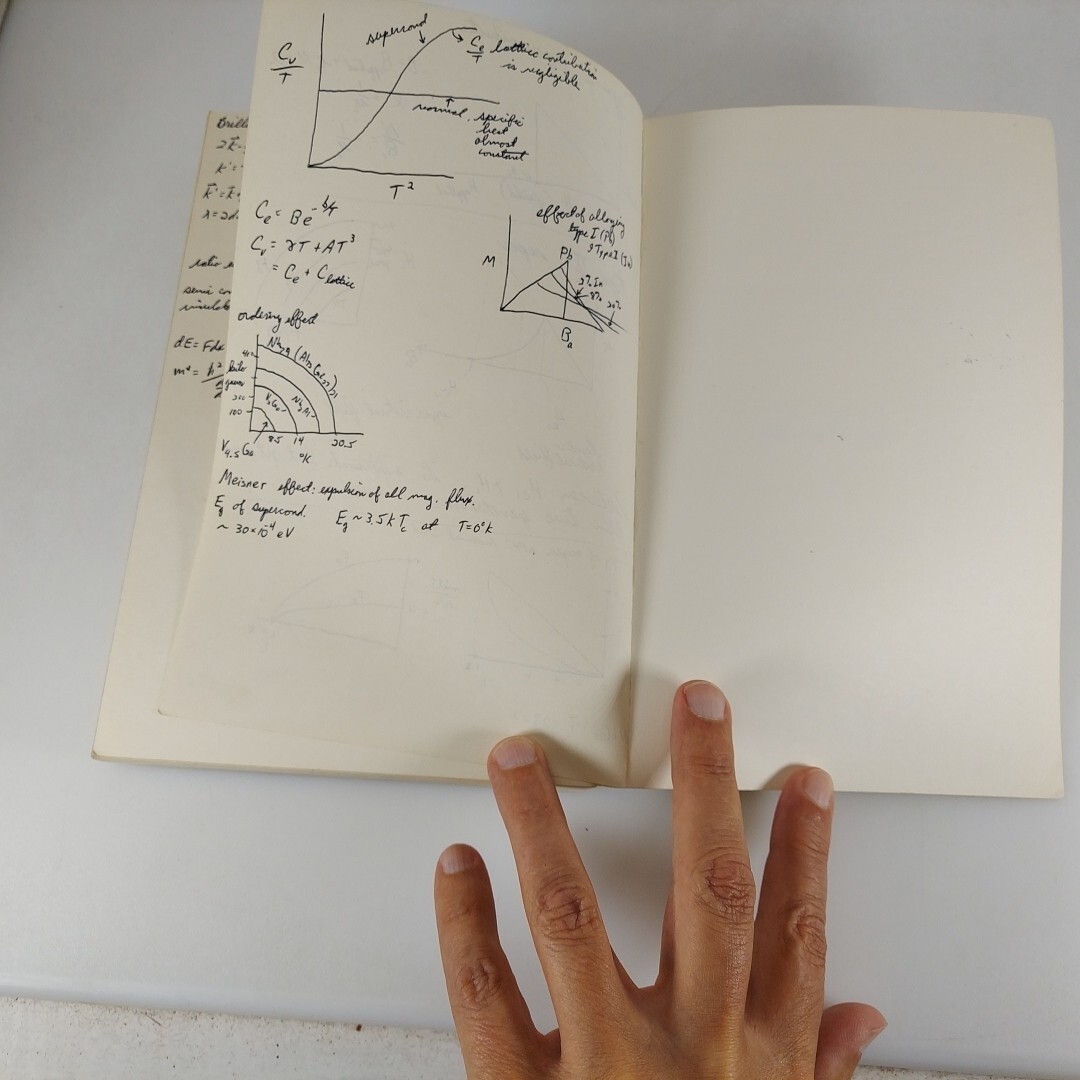 C_v/T
supercond
C_e/T lattice contribution
is negligible
normal, specific
heat
almost
constant
T²
C_e = Be^-b/T
C_v = γT + AT³
= C_e + C_lattice
effect of alloying
type I (Pb)
Type II (In)
M
Pb
2% In
8%
20%
B_a
ordering effect
410
kilo
gauss
200
100
8.5 14 20.5
°K
Meisner effect: expulsion of all mag. flux.
E_g of supercond. E_g ~ 3.5 k T_c at T=0°K
~ 30×10⁻⁴ eV
Brill
2k
k' =
k' = k +
λ = 2d
semi co
insulat
dE = Fdx
m* = ħ²